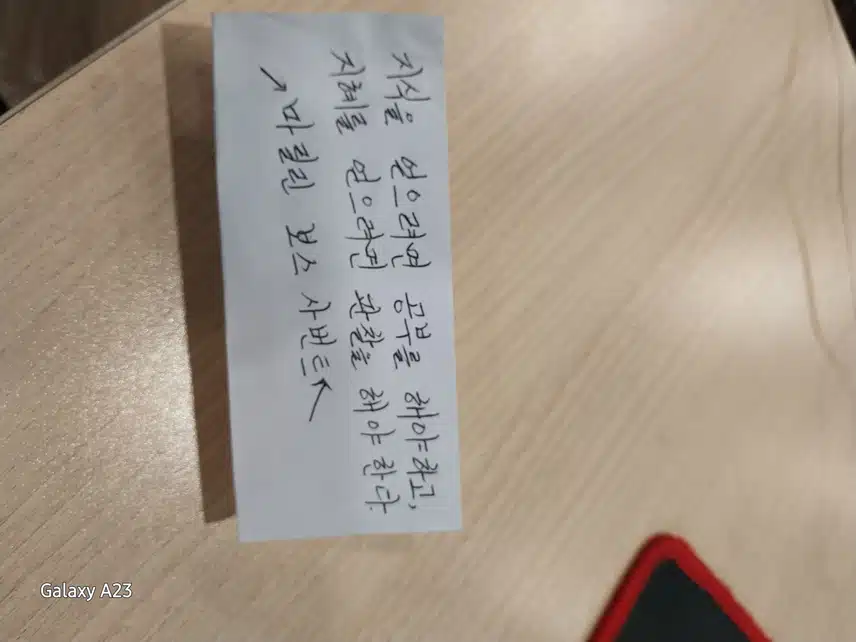 지식을 얻으려면 공부를 해야하고,
지혜를 얻으려면 관찰을 해야 한다.
↗ 마릴린 보스 사번트 ↖
Galaxy A23